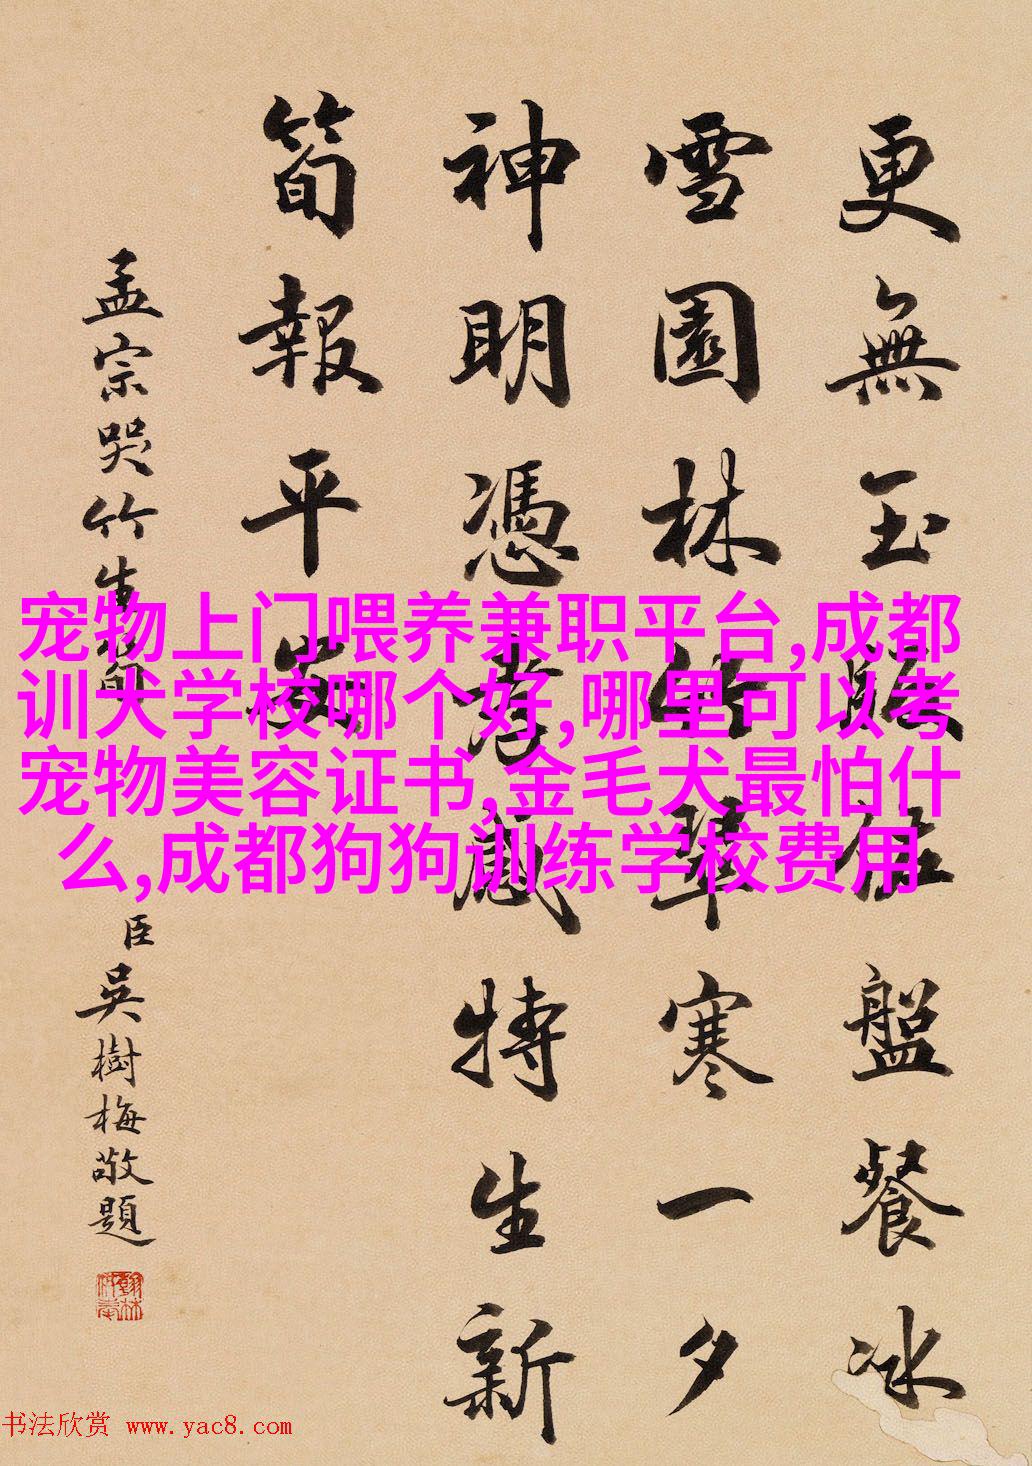 更無玉版佐盤餐冰
雪園林竹翠寒一夕
神明憑孝感特生新
筍報平安
孟宗哭竹生筍
臣吳樹梅敬題
宠物上门喂养兼职平台,成都
训犬学校哪个好,哪里可以考
宠物美容证书,金毛犬最怕什
么,成都狗狗训练学校费用
书法欣赏 www.yac8.com